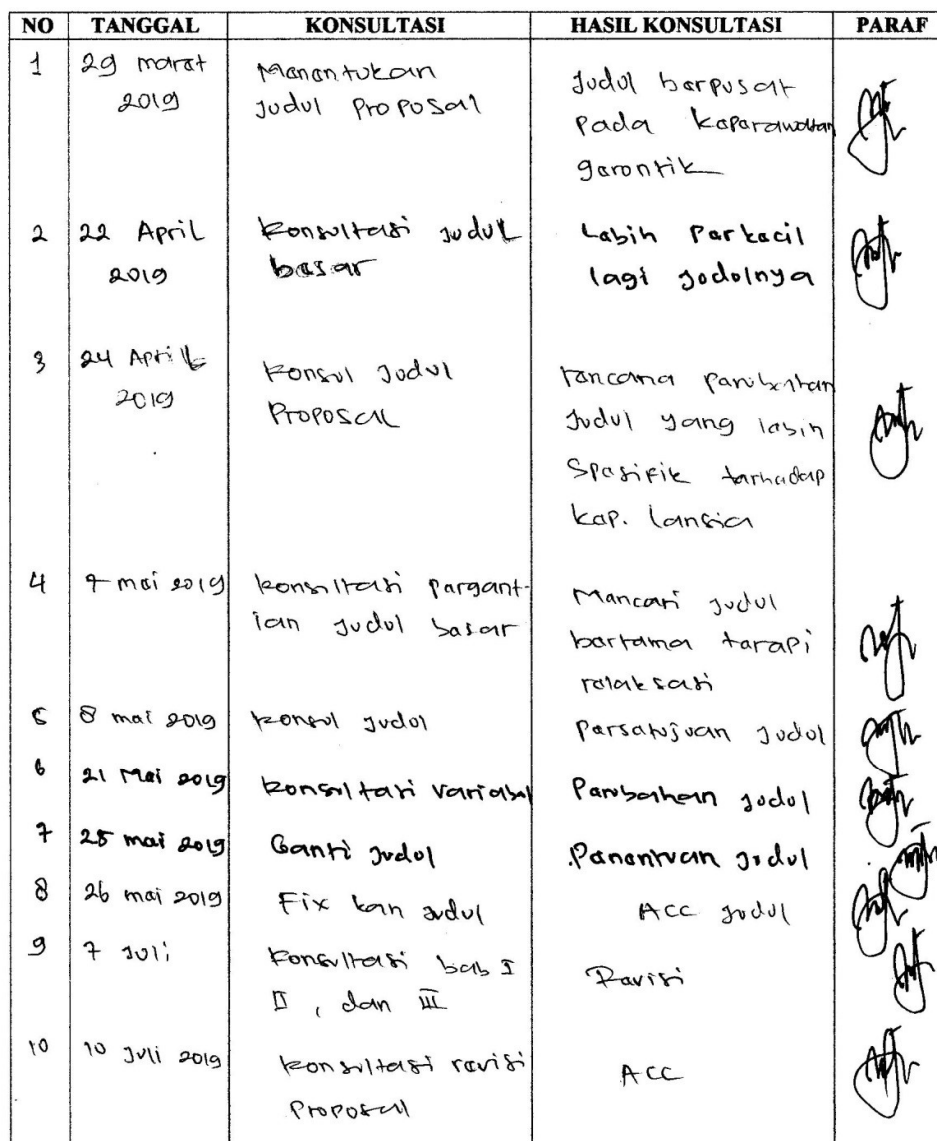 NO TANGGAL KONSULTASI HASIL KONSULTASI PARAF
1 29 maret Menentukan Judul berpusat
2019 Judul Proposal pada keperawatan
gerontik
2 22 April Konsultasi Judul Lebih Perkecil
2019 besar lagi Judulnya
3 24 April Konsul Judul rencana perubahan
2019 Proposal Judul yang lebih
Spesifik terhadap
kep. lansia
4 7 mei 2019 konsultasi pergant- Mencari judul
ian judul besar bertema terapi
relaksasi
5 8 mei 2019 konsul judul Persetujuan Judul
6 21 Mei 2019 konsultasi variabel Perubahan judul
7 25 mei 2019 Ganti judul Penentuan judul
8 26 mei 2019 Fix kan judul ACC judul
9 7 Juli konsultasi bab I Revisi
II, dan III
10 10 Juli 2019 konsultasi revisi ACC
Proposal